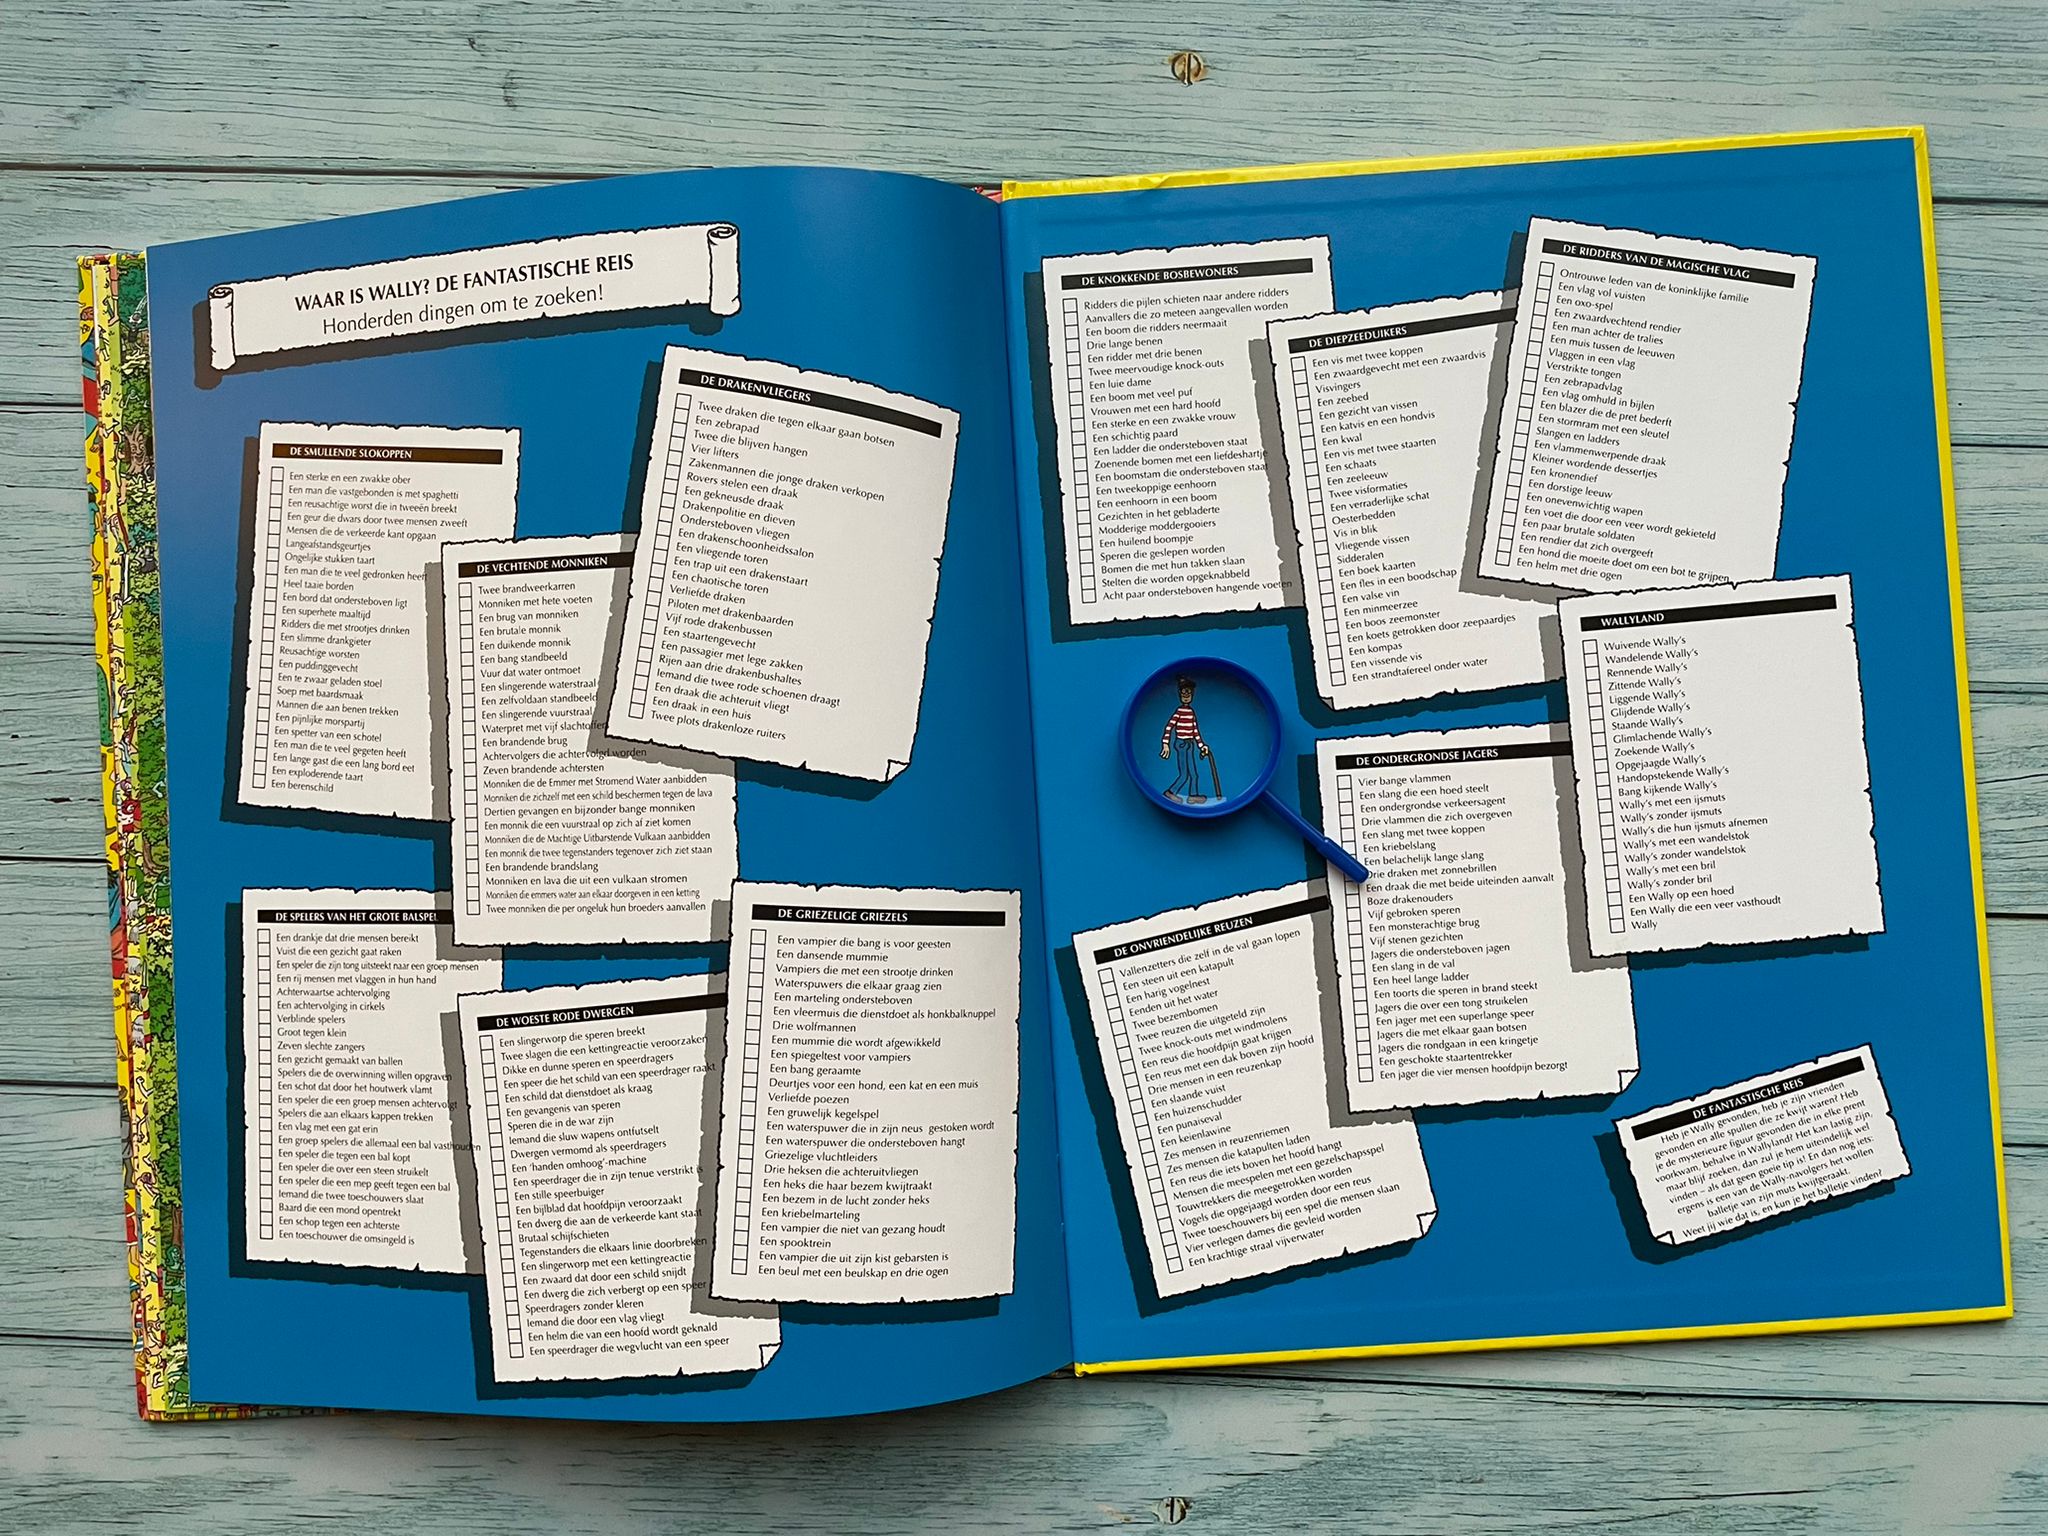 WAAR IS WALLY? DE FANTASTISCHE REIS
Honderden dingen om te zoeken!
DE SMULLENDE SLOKOPPEN
Een sterke en een zwakke ober
Een man die vastgebonden is met spaghetti
Een reusachtige worst die in tweeën breekt
Een geur die dwars door twee mensen zweeft
Mensen die de verkeerde kant opgaan
Langeafstandsgeurtjes
Ongelijke stukken taart
Een man die te veel gedronken heeft
Heel taaie borden
Een bord dat ondersteboven ligt
Een superhete maaltijd
Ridders die met strootjes drinken
Een slimme drankgieter
Reusachtige worsten
Een puddinggevecht
Een te zwaar geladen stoel
Soep met baardsmaak
Mannen die aan benen trekken
Een pijnlijke morspartij
Een spetter van een schotel
Een man die te veel gegeten heeft
Een lange gast die een lang bord eet
Een exploderende taart
Een berenschild
DE VECHTENDE MONNIKEN
Twee brandweerkarren
Monniken met hete voeten
Een brug van monniken
Een brutale monnik
Een duikende monnik
Een bang standbeeld
Vuur dat water ontmoet
Een slingerende waterstraal
Een zelfvoldaan standbeeld
Een slingerende vuurstraal
Waterpret met vijf slachtoffers
Een brandende brug
Achtervolgers die achtervolgd worden
Zeven brandende achtersten
Monniken die de Emmer met Stromend Water aanbidden
Monniken die zichzelf met een schild beschermen tegen de lava
Dertien gevangen en bijzonder bange monniken
Een monnik die een vuurstraal op zich af ziet komen
Monniken die de Machtige Uitbarstende Vulkaan aanbidden
Een monnik die twee tegenstanders tegenover zich ziet staan
Een brandende brandslang
Monniken en lava die uit een vulkaan stromen
Monniken die emmers water aan elkaar doorgeven in een ketting
Twee monniken die per ongeluk hun broeders aanvallen
DE DRAKENVLIEGERS
Twee draken die tegen elkaar gaan botsen
Een zebrapad
Twee die blijven hangen
Vier lifters
Zakenmannen die jonge draken verkopen
Rovers stelen een draak
Een gekneusde draak
Drakenpolitie en dieven
Ondersteboven vliegen
Een drakenschoonheidssalon
Een vliegende toren
Een trap uit een drakenstaart
Een chaotische toren
Verliefde draken
Piloten met drakenbaarden
Vijf rode drakenbussen
Een staartengevecht
Een passagier met lege zakken
Rijen aan drie drakenbushaltes
Iemand die twee rode schoenen draagt
Een draak die achteruit vliegt
Een draak in een huis
Twee plots drakenloze ruiters
DE SPELERS VAN HET GROTE BALSPEL
Een drankje dat drie mensen bereikt
Vuist die een gezicht gaat raken
Een speler die zijn tong uitsteekt naar een groep mensen
Een rij mensen met vlaggen in hun hand
Achterwaartse achtervolging
Een achtervolging in cirkels
Verblinde spelers
Groot tegen klein
Zeven slechte zangers
Een gezicht gemaakt van ballen
Spelers die de overwinning willen opgraven
Een schot dat door het houtwerk vlamt
Een speler die een groep mensen achtervolgt
Spelers die aan elkaars kappen trekken
Een vlag met een gat erin
Een groep spelers die allemaal een bal vasthouden
Een speler die tegen een bal kopt
Een speler die over een steen struikelt
Een speler die een mep geeft tegen een bal
Iemand die twee toeschouwers slaat
Baard die een mond opentrekt
Een schop tegen een achterste
Een toeschouwer die omsingeld is
DE WOESTE RODE DWERGEN
Een slingerworp die speren breekt
Twee slagen die een kettingreactie veroorzaken
Dikke en dunne speren en speerdragers
Een speer die het schild van een speerdrager raakt
Een schild dat dienstdoet als kraag
Een gevangenis van speren
Speren die in de war zijn
Iemand die sluw wapens ontfutselt
Dwergen vermomd als speerdragers
Een 'handen omhoog'-machine
Een speerdrager die in zijn tenue verstrikt is
Een stille speerbuiger
Een bijlblad dat hoofdpijn veroorzaakt
Een dwerg die aan de verkeerde kant staat
Brutaal schijfschieten
Tegenstanders die elkaars linie doorbreken
Een slingerworp met een kettingreactie
Een zwaard dat door een schild snijdt
Een dwerg die zich verbergt op een speer
Speerdragers zonder kleren
Iemand die door een vlag vliegt
Een helm die van een hoofd wordt geknald
Een speerdrager die wegvlucht van een speer
DE GRIEZELIGE GRIEZELS
Een vampier die bang is voor geesten
Een dansende mummie
Vampiers die met een strootje drinken
Waterspuwers die elkaar graag zien
Een marteling ondersteboven
Een vleermuis die dienstdoet als honkbalknuppel
Drie wolfmannen
Een mummie die wordt afgewikkeld
Een spiegeltest voor vampiers
Een bang geraamte
Deurtjes voor een hond, een kat en een muis
Verliefde poezen
Een gruwelijk kegelspel
Een waterspuwer die in zijn neus gestoken wordt
Een waterspuwer die ondersteboven hangt
Griezelige vluchtleiders
Drie heksen die achteruitvliegen
Een heks die haar bezem kwijtraakt
Een bezem in de lucht zonder heks
Een kriebelmarteling
Een vampier die niet van gezang houdt
Een spooktrein
Een vampier die uit zijn kist gebarsten is
Een beul met een beulskap en drie ogen
DE KNOKKENDE BOSBEWONERS
Ridders die pijlen schieten naar andere ridders
Aanvallers die zo meteen aangevallen worden
Een boom die ridders neermaait
Drie lange benen
Een ridder met drie benen
Twee meervoudige knock-outs
Een luie dame
Een boom met veel puf
Vrouwen met een hard hoofd
Een sterke en een zwakke vrouw
Een schichtig paard
Een ladder die ondersteboven staat
Zoenende bomen met een liefdeshartje
Een boomstam die ondersteboven staat
Een tweekoppige eenhoorn
Een eenhoorn in een boom
Gezichten in het gebladerte
Modderige moddergooiers
Een huilend boompje
Speren die geslepen worden
Bomen die met hun takken slaan
Stelten die worden opgeknabbeld
Acht paar ondersteboven hangende voeten
DE DIEPZEEDUIKERS
Een vis met twee koppen
Een zwaardgevecht met een zwaardvis
Visvingers
Een zeebed
Een gezicht van vissen
Een katvis en een hondvis
Een kwal
Een vis met twee staarten
Een schaats
Een zeeleeuw
Twee visformaties
Een verraderlijke schat
Oesterbedden
Vis in blik
Vliegende vissen
Sidderalen
Een boek kaarten
Een fles in een boodschap
Een valse vin
Een minmeerzee
Een boos zeemonster
Een koets getrokken door zeepaardjes
Een kompas
Een vissende vis
Een strandtafereel onder water
DE RIDDERS VAN DE MAGISCHE VLAG
Ontrouwe leden van de koninklijke familie
Een vlag vol vuisten
Een oxo-spel
Een zwaardvechtend rendier
Een man achter de tralies
Een muis tussen de leeuwen
Vlaggen in een vlag
Verstrikte tongen
Een zebrapadvlag
Een vlag omhuld in bijlen
Een blazer die de pret bederft
Een stormram met een sleutel
Slangen en ladders
Een vlammenwerpende draak
Kleiner wordende dessertjes
Een kronendief
Een dorstige leeuw
Een onevenwichtig wapen
Een voet die door een veer wordt gekieteld
Een paar brutale soldaten
Een rendier dat zich overgeeft
Een hond die moeite doet om een bot te grijpen
Een helm met drie ogen
WALLYLAND
Wuivende Wally's
Wandelende Wally's
Rennende Wally's
Zittende Wally's
Liggende Wally's
Glijdende Wally's
Staande Wally's
Glimlachende Wally's
Zoekende Wally's
Opgejaagde Wally's
Handopstekende Wally's
Bang kijkende Wally's
Wally's met een ijsmuts
Wally's zonder ijsmuts
Wally's die hun ijsmuts afnemen
Wally's met een wandelstok
Wally's zonder wandelstok
Wally's met een bril
Wally's zonder bril
Een Wally op een hoed
Een Wally die een veer vasthoudt
Wally
DE ONDERGRONDSE JAGERS
Vier bange vlammen
Een slang die een hoed steelt
Een ondergrondse verkeersagent
Drie vlammen die zich overgeven
Een slang met twee koppen
Een kriebelslang
Een belachelijk lange slang
Drie draken met zonnebrillen
Een draak die met beide uiteinden aanvalt
Boze drakenouders
Vijf gebroken speren
Een monsterachtige brug
Vijf stenen gezichten
Jagers die ondersteboven jagen
Een slang in de val
Een heel lange ladder
Een toorts die speren in brand steekt
Jagers die over een tong struikelen
Een jager met een superlange speer
Jagers die met elkaar gaan botsen
Jagers die rondgaan in een kringetje
Een geschokte staartentrekker
Een jager die vier mensen hoofdpijn bezorgt
DE ONVRIENDELIJKE REUZEN
Vallenzetters die zelf in de val gaan lopen
Een steen uit een katapult
Een harig vogelnest
Eenden uit het water
Twee bezembomen
Twee reuzen die uitgeteld zijn
Twee knock-outs met windmolens
Een reus die hoofdpijn gaat krijgen
Een reus met een dak boven zijn hoofd
Drie mensen in een reuzenkap
Een slaande vuist
Een huizenschudder
Een punaiseval
Een keienlawine
Zes mensen in reuzenriemen
Zes mensen die katapulten laden
Een reus die iets boven het hoofd hangt
Mensen die meespelen met een gezelschapsspel
Touwtrekkers die meegetrokken worden
Vogels die opgejaagd worden door een reus
Twee toeschouwers bij een spel die mensen slaan
Vier verlegen dames die gevleid worden
Een krachtige straal vijverwater
DE FANTASTISCHE REIS
Heb je Wally gevonden, heb je zijn vrienden
gevonden en alle spullen die ze kwijt waren? Heb
je de mysterieuze figuur gevonden die in elke prent
voorkwam, behalve in Wallyland? Het kan lastig zijn,
maar blijf zoeken, dan zul je hem uiteindelijk wel
vinden – als dat geen goeie tip is! En dan nog iets:
ergens is een van de Wally-navolgers het wollen
balletje van zijn muts kwijtgeraakt.
Weet jij wie dat is, en kun je het balletje vinden?